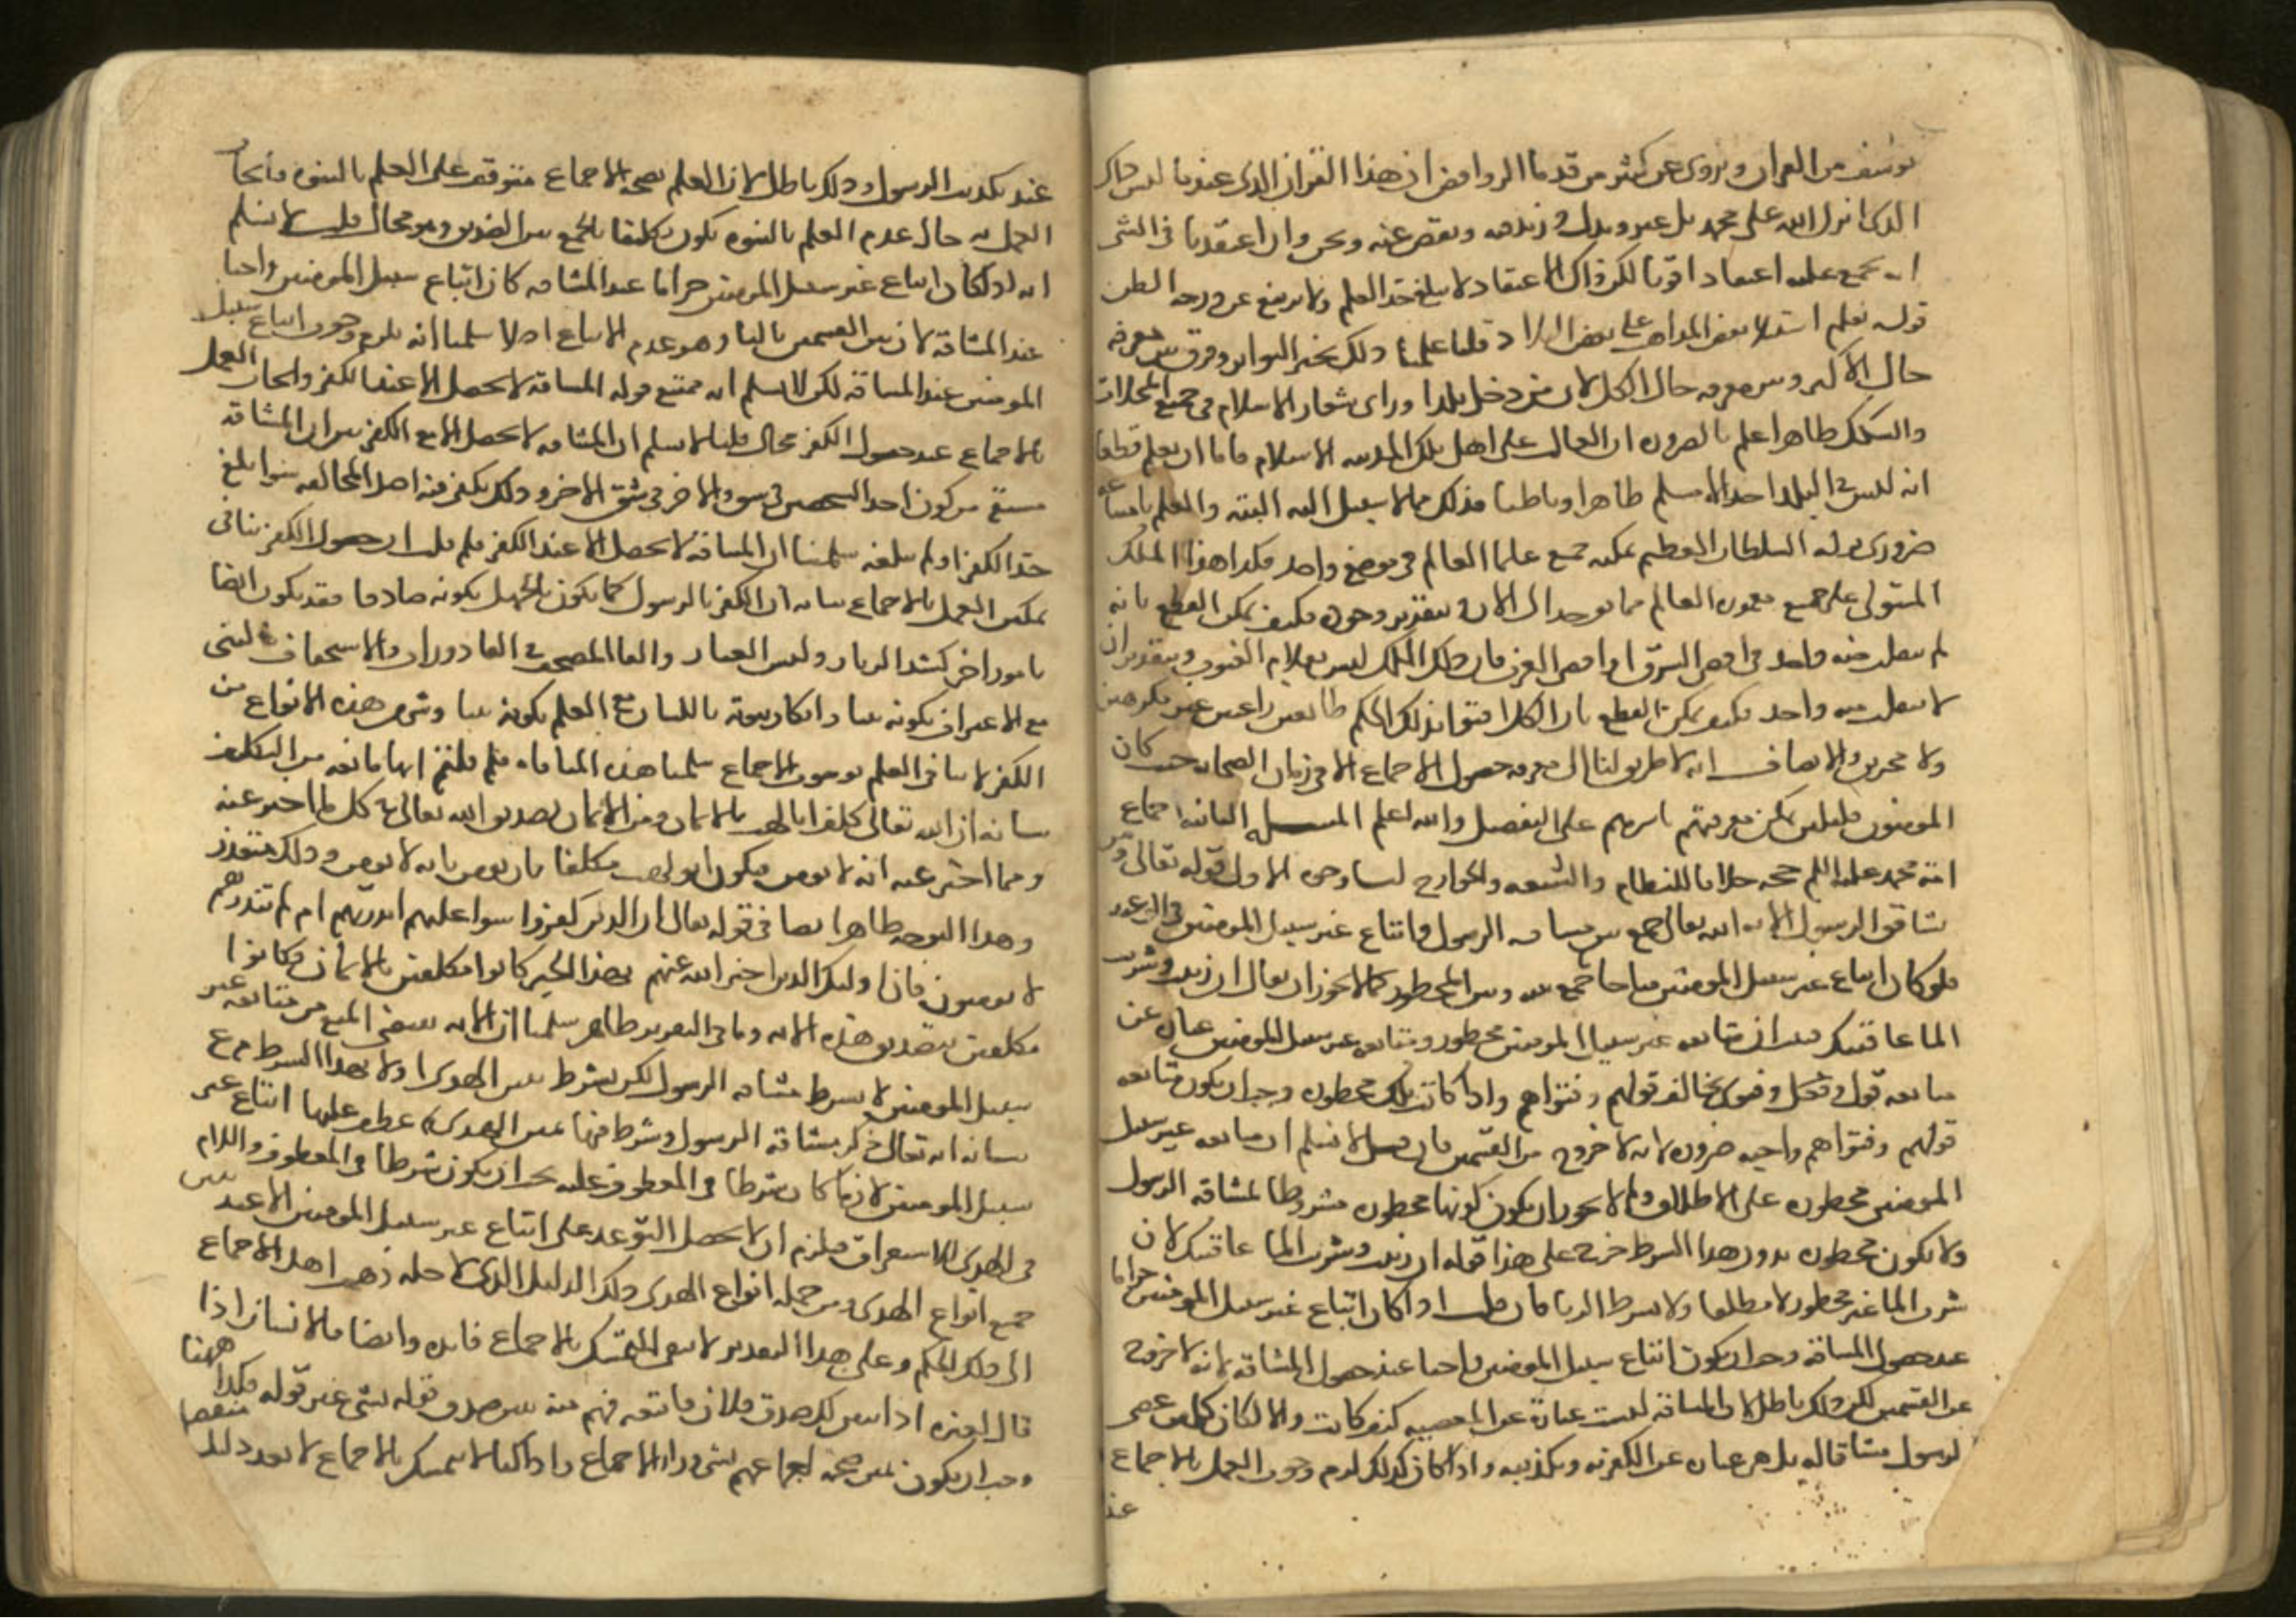 يوسف من القران ويروى عن كثير من قدما الروافض ان هذا القران الذى عندنا ليس ذاك
الذى انزل الله على محمد بل غير وبدل وزيد فيه ونقص عنه ونحن وان اعتقدنا فى الشى
انه مجمع عليه اعتقادا قويا لكن ذاك الاعتقاد لا يبلغ حد العلم ولا يرتفع عن درجه الظن
قوله نعلم استيلا بعض المذاهب على بعض البلاد قلنا علمنا ذلك بخبر التواتر وفرق بين معرفه
حال الاكثر وبين معرفه حال الكل لان من دخل بلدا وراى شعار الاسلام فى جميع المحلات
والسكك ظاهرا علم بالضروره ان الغالب على اهل تلك المدينه الاسلام فاما ان يعلم قطعا
انه ليس فى البلد احد الا مسلم ظاهرا وباطنا فذلك مما لا سبيل اليه البته والعلم بامتناعه
ضرورى قوله السلطان العظيم يمكنه جمع علما العالم فى موضع واحد قلنا هذا الملك
المتولى على جميع معمور العالم مما لم يوجد الى الان وبتقدير وجوده فكيف يمكن القطع بانه
لم ينفلت منه واحد فى اقصى الشرق او اقصى الغرب فان ذلك الملك ليس بعلام الغيوب وبتقدير ان
لا ينفلت منه واحد فكيف يمكن القطع بان الكل افتوا بذلك الحكم طايعين راغبين غير مكرهين
ولا مجبرين والانصاف انه لا طريق لنا الى معرفه حصول الاجماع الا فى زمان الصحابه حيث كان
المومنون قليلين يمكن معرفتهم باسرهم على التفصيل والله اعلم المسله الثانيه اجماع
امة محمد عليه السلم حجه خلافا للنظام والشيعه والخوارج لنا وجوه الاول قوله تعالى ومن
يشاقق الرسول الايه ان الله تعالى جمع بين مشاقه الرسول واتباع غير سبيل المومنين فى الوعيد
فلو كان اتباع غير سبيل المومنين مباحا لما جمع بينه وبين المحظور كما لا يجوز ان يقال ان زنيت وشربت
الما عاقبتك فثبت ان متابعه غير سبيل المومنين محظوره ومتابعه غير سبيل المومنين عباره عن
متابعه قول وفعل وفتوى يخالف قولهم وفتواهم واذا كانت تلك محظوره وجب ان يكون متابعه
قولهم وفتواهم واجبه ضروره لانه لا خروج من القسمين فان قيل لا نسلم ان متابعه غير سبيل
المومنين محظوره على الاطلاق ولم لا يجوز ان يكون كونها محظوره مشروطا لمشاقه الرسول
ولا تكون محظوره بدون هذا الشرط خرج على هذا قوله ان زنيت وشربت الما عاقبتك لان
شرب الما غير محظور لا مطلقا ولا بشرط الزنا فان قلت اذا كان اتباع غير سبيل المومنين حراما
عند حصول المشاقة وجب ان يكون اتباع سبيل المومنين واجبا عند حصول المشاقه لانه لا خروج
عن القسمين لكن ذلك باطل لان المشاقه ليست عبارة عن المعصيه كيف كانت والا لكان كل من عصى
الرسول مشاقا له بل هى عباره عن الكفر به وتكذيبه واذا كان كذلك لزم وجوب العمل بالاجماع
عند
عند تكذيب الرسول وذلك باطل لان العلم بصحه الاجماع متوقف على العلم بالنبوه فايجاب
العمل به حال عدم العلم بالنبوه يكون تكليفا بالجمع بين الضدين وهو محال قلت لا نسلم
انه لو كان اتباع غير سبيل المومنين حراما عند المشاقه كان اتباع سبيل المومنين واجبا
عند المشاقه لان بين القسمين ثالثا وهو عدم الاتباع اصلا سلمنا انه يلزم وجوب اتباع سبيل
المومنين عند المشاقه لكن لا نسلم انه ممتنع قوله المشاقه لا تحصل الا عند الكفر وايجاب العمل
بالاجماع عند حصول الكفر محال قلنا لا نسلم ان المشاقه لا تحصل الا مع الكفر بيانه ان المشاقه
مشتق من كون احد الشخصين فى شق والاخر فى شق الاخر وذلك يكفى فيه اصل المخالفه سوا بلغ
حد الكفر او لم يبلغه سلمنا ان المشاقه لا تحصل الا عند الكفر فلم قلت ان حصول الكفر ينافى
تمكن العمل بالاجماع بيانه ان الكفر بالرسول كما يكون بالجهل بكونه صادقا فقد يكون ايضا
بامور اخر كشد الزنار ولبس الغيار والقا المصحف فى القاذورات والاستخفاف بالنبى
مع الاعتراف بكونه نبيا وانكار نبوته باللسان مع العلم بكونه نبيا وشى من هذه الانواع من
الكفر لا ينافى العلم بوجوب الاجماع سلمنا هذه المنافاه فلم قلتم انها مانعه من التكليف
بيانه ان الله تعالى كلف ابا لهب بالايمان ومن الايمان تصديق الله تعالى فى كل ما اخبر عنه
ومما اخبر عنه انه لا يومن فيكون ابو لهب مكلفا بان يومن بانه لا يومن وذلك متعذر
وهذا التوجه ظاهر ايضا فى قوله تعالى ان الذين كفروا سوا عليهم اانذرتهم ام لم تنذرهم
لا يومنون فان اوليك الذين اخبر الله عنهم بهذا الخبر كانوا مكلفين بالايمان فكانوا
مكلفين بتصديق هذه الايه وباقى التقرير ظاهر سلمنا ان الايه تقتضى المنع من متابعه غير
سبيل المومنين لا بشرط مشاقه الرسول لكن بشرط تبين الهدى او لا بهذا الشرط م ع
بيانه انه تعالى ذكر مشاقة الرسول وشرط فيها تبين الهدى ثم عطف عليها اتباع غير
سبيل المومنين لان ما كان شرطا فى المعطوف عليه يجب ان يكون شرطا فى المعطوف واللام
فى الهدى للاستغراق فيلزم ان لا يحصل التوعد على اتباع غير سبيل المومنين الا عند تبين
جميع انواع الهدى ومن جمله انواع الهدى ذلك الدليل الذى لاجله ذهب اهل الاجماع
الى ذلك الحكم وعلى هذا التقدير لا يبقى للتمسك بالاجماع فايده وايضا فالانسان اذا
قال لغيره اذا تبين لك صدق فلان فاتبعه فهم منه تبين صدق قوله بشى غير قوله فكذا ههنا
وجب ان يكون تبين صحه اجماعهم بشى ورا الاجماع واذا كنا لا نتمسك بالاجماع الا بعد دليل منفصل